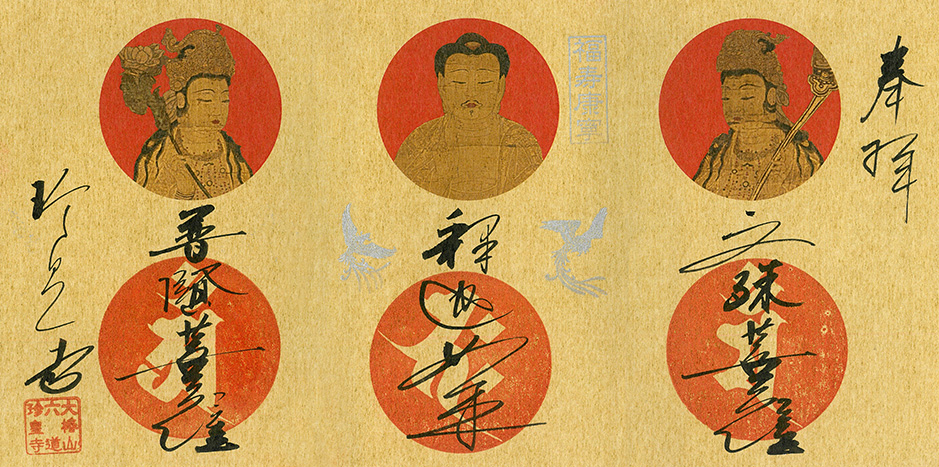 奉拝
文殊菩薩
福寿康寧
釈迦如来
普賢菩薩
珍皇寺
大椿山
六道
珍皇寺